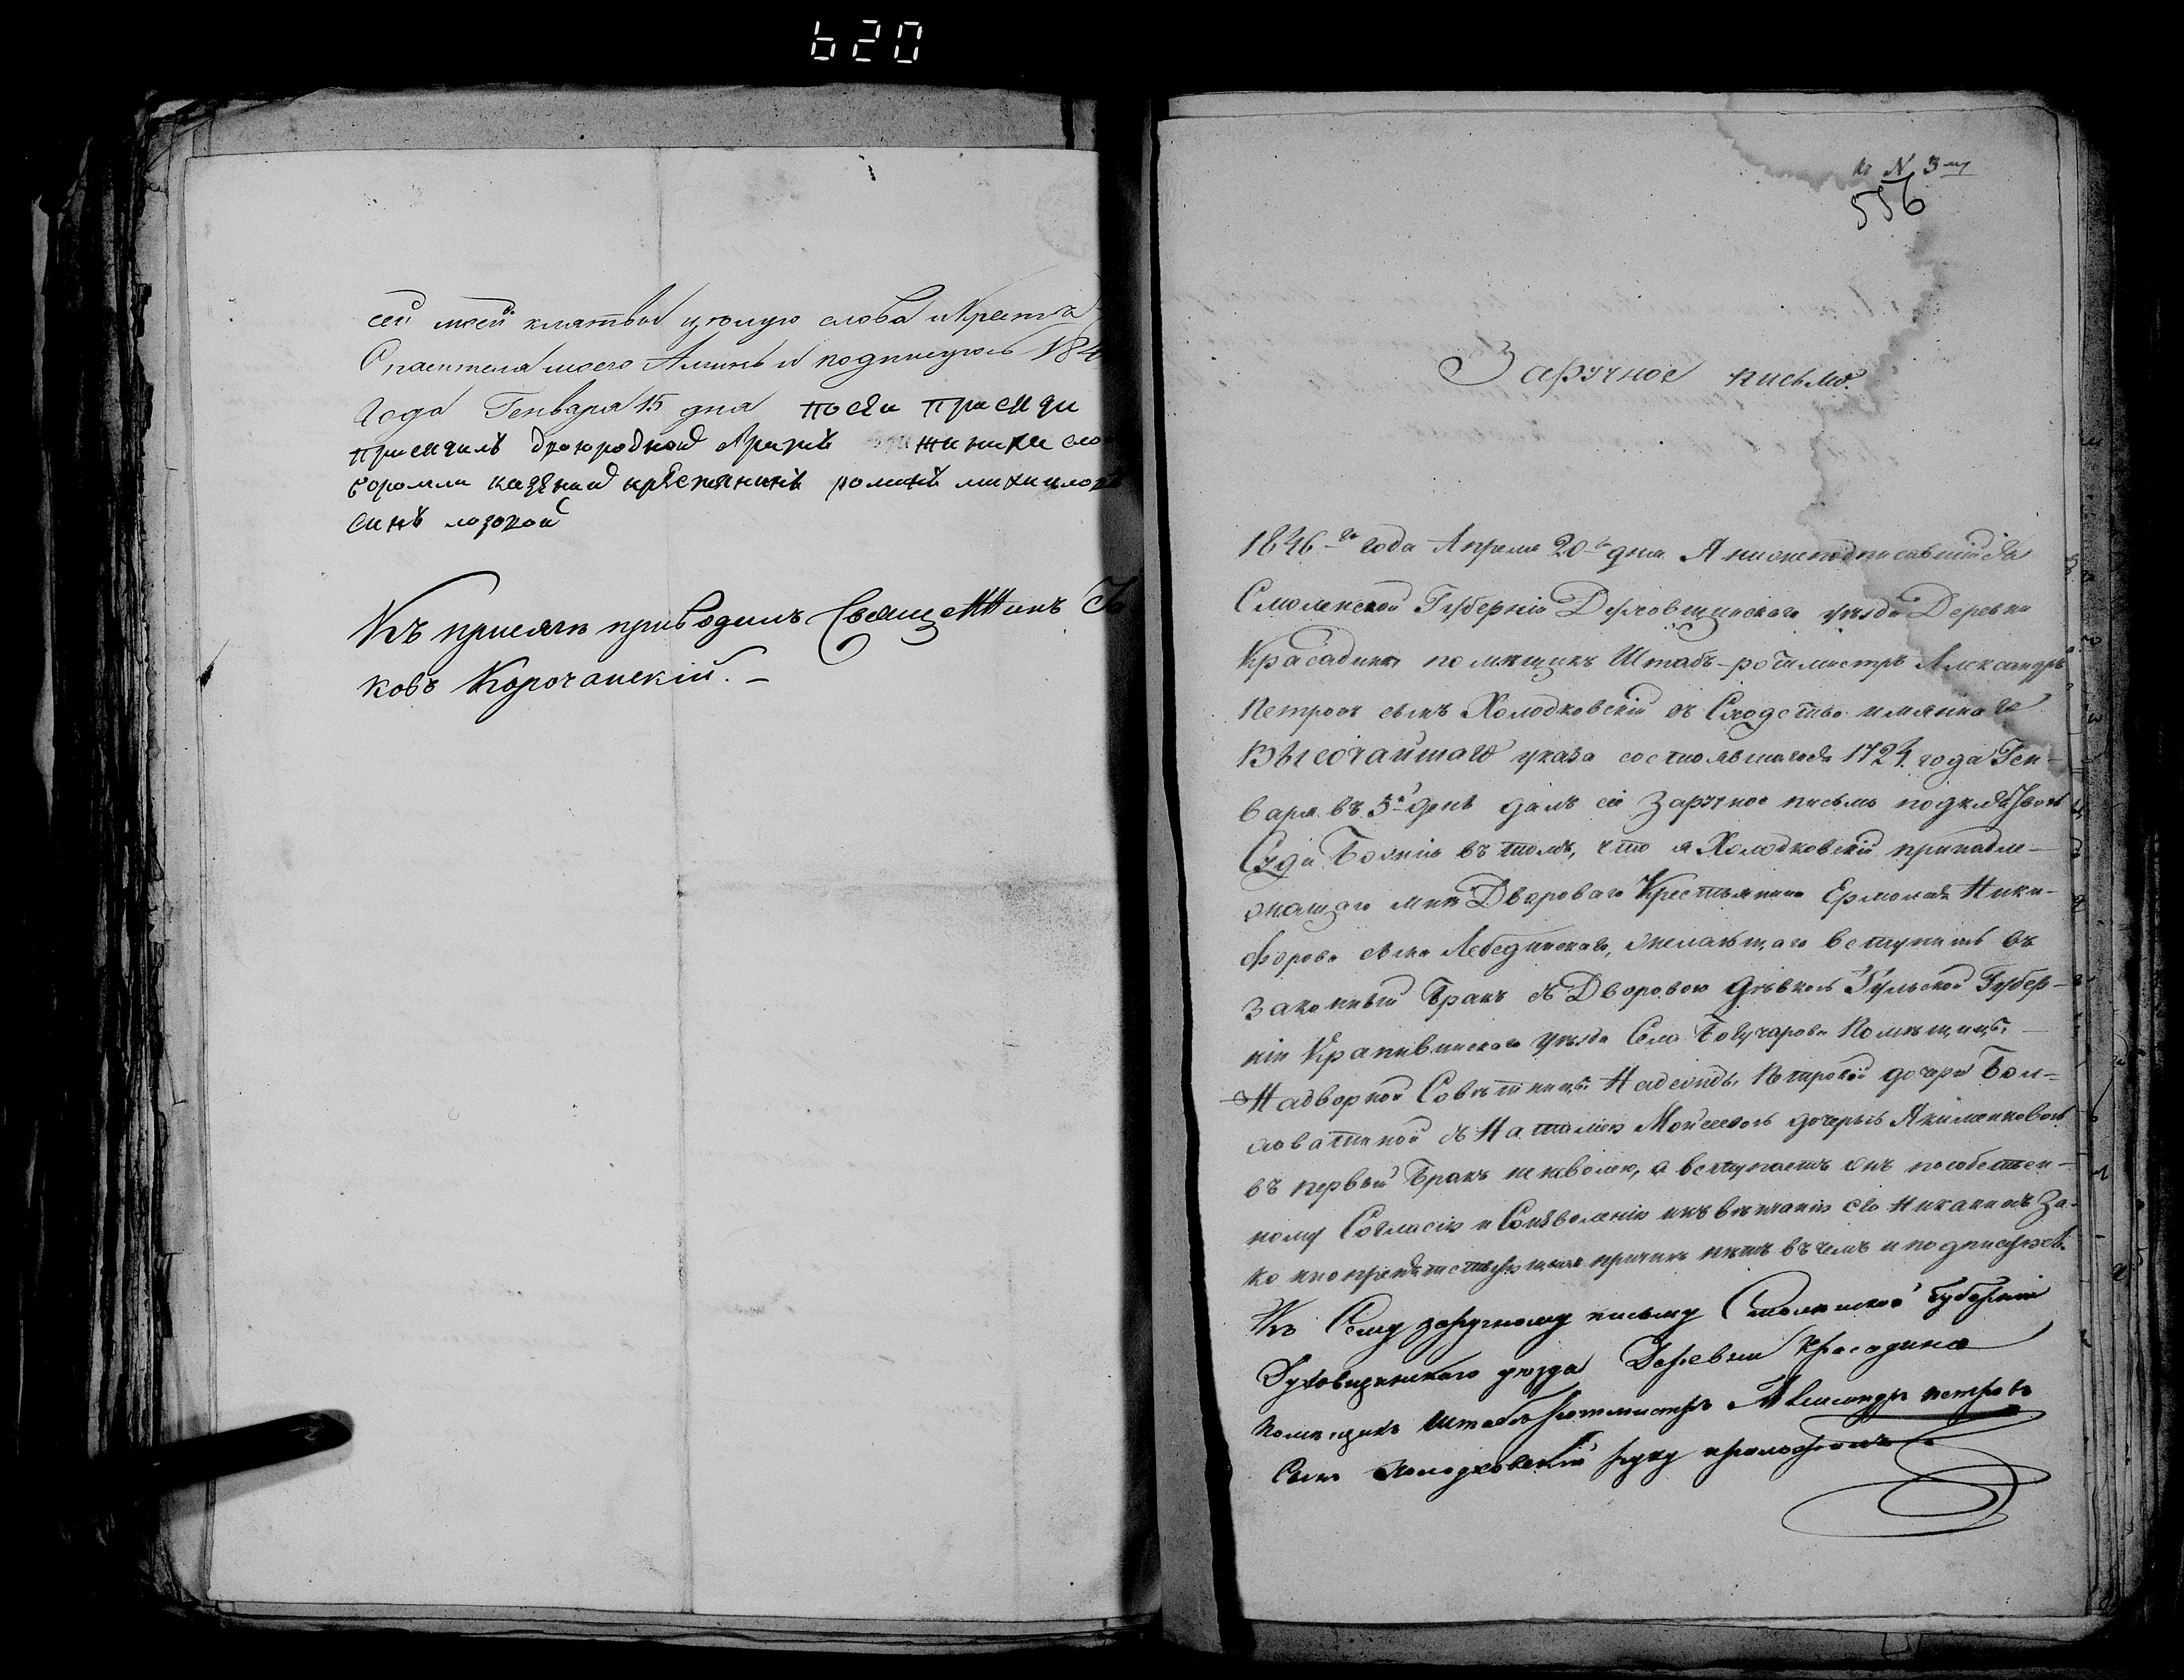 620
сей моей клятвы цѣлую слова и Крестъ
Спасителя моего Аминь и подпишусь 184
года Генваря 15 дня посей присяди
присягалъ двоюродной братъ жениха сло
казеной крестянинъ романъ михаиловъ
синъ лозовой
Къ присягѣ приводилъ Священникъ
ковъ Корочанскій. –
къ N 3му
556
Заручное письмо.
1846-го года Апреля 20-го дня Я нижеподписавшійся
Смоленской Губерніи Духовщинскаго уѣзда Деревни
Красадина помѣщикъ Штабъ-ротмистръ Александръ
Петровъ сынъ Холодковскій въ Сходство имяннаго
Высочайшаго указа состоявшагося 1724 года Ген-
варя въ 5й день далъ сіе Заручное письмо подклятвою
Суда Божія въ томъ, что я Холодковскій принадле-
жащаго мнѣ Двороваго Крестьянина Ермолая Ники-
форова сына Лебединскаго, желающаго вступить въ
законный Бракъ съ Дворовою дѣвкою Тульской Губер-
ніи Крапивинскаго Уѣзда Села Богучарова Помѣщицы
Надворной Совѣтницы Надежды Петровой дочери Бол-
ховатиной съ Наталіею Мойсеевою дочерью Якименковою
въ первый Бракъ не неволею, а вступаетъ онъ пособствен-
ному Согласію и Соизволенію и къ вѣнчанію его Никакихъ За-
конопрепятствующихъ причинъ нѣтъ въ чемъ и подписуюсь.
Къ Сему заручному письму Смоленской Губерніи
Духовщинскаго уезда Деревни Красадина
Помещикъ Штабъ Ротмистръ Александръ петровъ
Сынъ Холодковский руку приложилъ